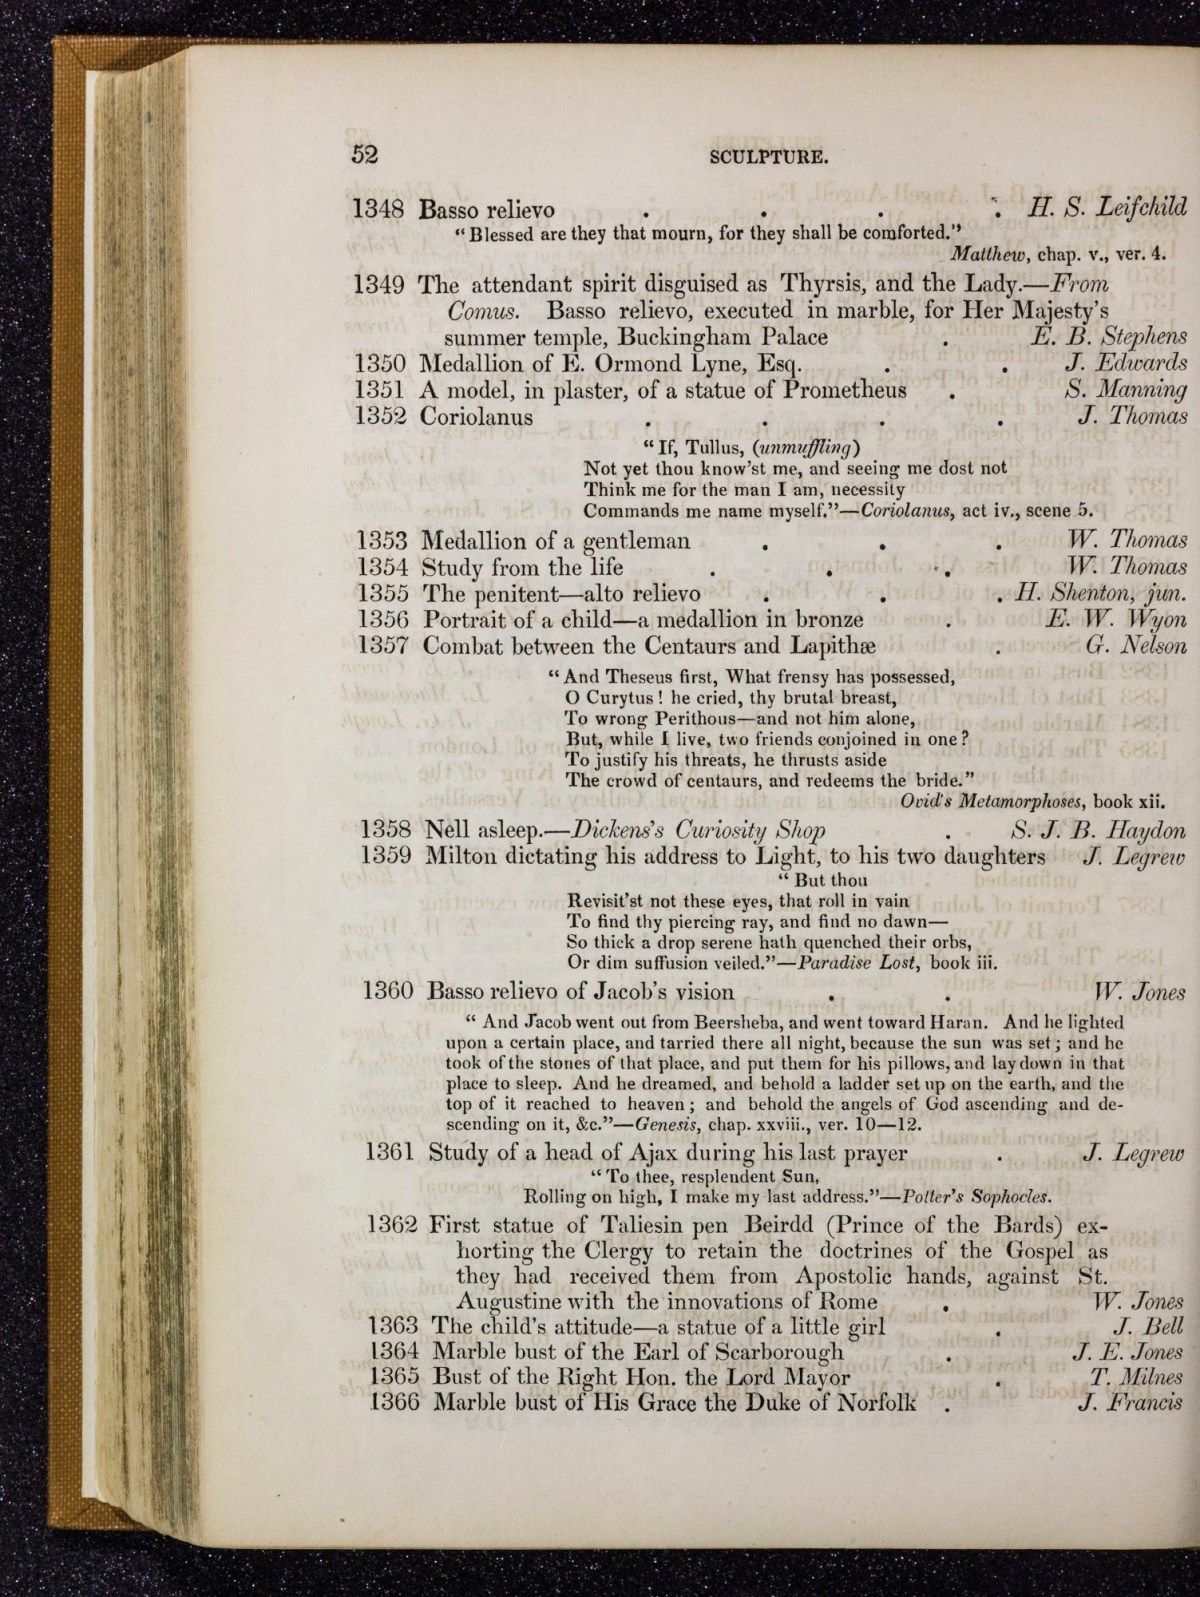 52
SCULPTURE.
1348 Basso relievo . . . . H. S. Leifchild
“Blessed are they that mourn, for they shall be comforted.”
Matthew, chap. v., ver. 4.
1349 The attendant spirit disguised as Thyrsis, and the Lady.—From
Comus. Basso relievo, executed in marble, for Her Majesty’s
summer temple, Buckingham Palace . E. B. Stephens
1350 Medallion of E. Ormond Lyne, Esq. . . J. Edwards
1351 A model, in plaster, of a statue of Prometheus . S. Manning
1352 Coriolanus . . . . J. Thomas
“If, Tullus, (unmuffling)
Not yet thou know’st me, and seeing me dost not
Think me for the man I am, necessity
Commands me name myself.”—Coriolanus, act iv., scene 5.
1353 Medallion of a gentleman . . . W. Thomas
1354 Study from the life . . . . W. Thomas
1355 The penitent—alto relievo . . . H. Shenton, jun.
1356 Portrait of a child—a medallion in bronze . E. W. Wyon
1357 Combat between the Centaurs and Lapithæ . G. Nelson
“And Theseus first, What frensy has possessed,
O Curytus! he cried, thy brutal breast,
To wrong Perithous—and not him alone,
But, while I live, two friends conjoined in one?
To justify his threats, he thrusts aside
The crowd of centaurs, and redeems the bride.”
Ovid’s Metamorphoses, book xii.
1358 Nell asleep.—Dickens’s Curiosity Shop . S. J. B. Haydon
1359 Milton dictating his address to Light, to his two daughters J. Legrew
“But thou
Revisit’st not these eyes, that roll in vain
To find thy piercing ray, and find no dawn—
So thick a drop serene hath quenched their orbs,
Or dim suffusion veiled.”—Paradise Lost, book iii.
1360 Basso relievo of Jacob’s vision . . W. Jones
“And Jacob went out from Beersheba, and went toward Haran. And he lighted
upon a certain place, and tarried there all night, because the sun was set; and he
took of the stones of that place, and put them for his pillows, and lay down in that
place to sleep. And he dreamed, and behold a ladder set up on the earth, and the
top of it reached to heaven; and behold the angels of God ascending and de-
scending on it, &c.”—Genesis, chap. xxviii., ver. 10—12.
1361 Study of a head of Ajax during his last prayer . J. Legrew
“To thee, resplendent Sun,
Rolling on high, I make my last address.”—Potter’s Sophocles.
1362 First statue of Taliesin pen Beirdd (Prince of the Bards) ex-
horting the Clergy to retain the doctrines of the Gospel as
they had received them from Apostolic hands, against St.
Augustine with the innovations of Rome . W. Jones
1363 The child’s attitude—a statue of a little girl . J. Bell
1364 Marble bust of the Earl of Scarborough . J. E. Jones
1365 Bust of the Right Hon. the Lord Mayor . T. Milnes
1366 Marble bust of His Grace the Duke of Norfolk . J. Francis